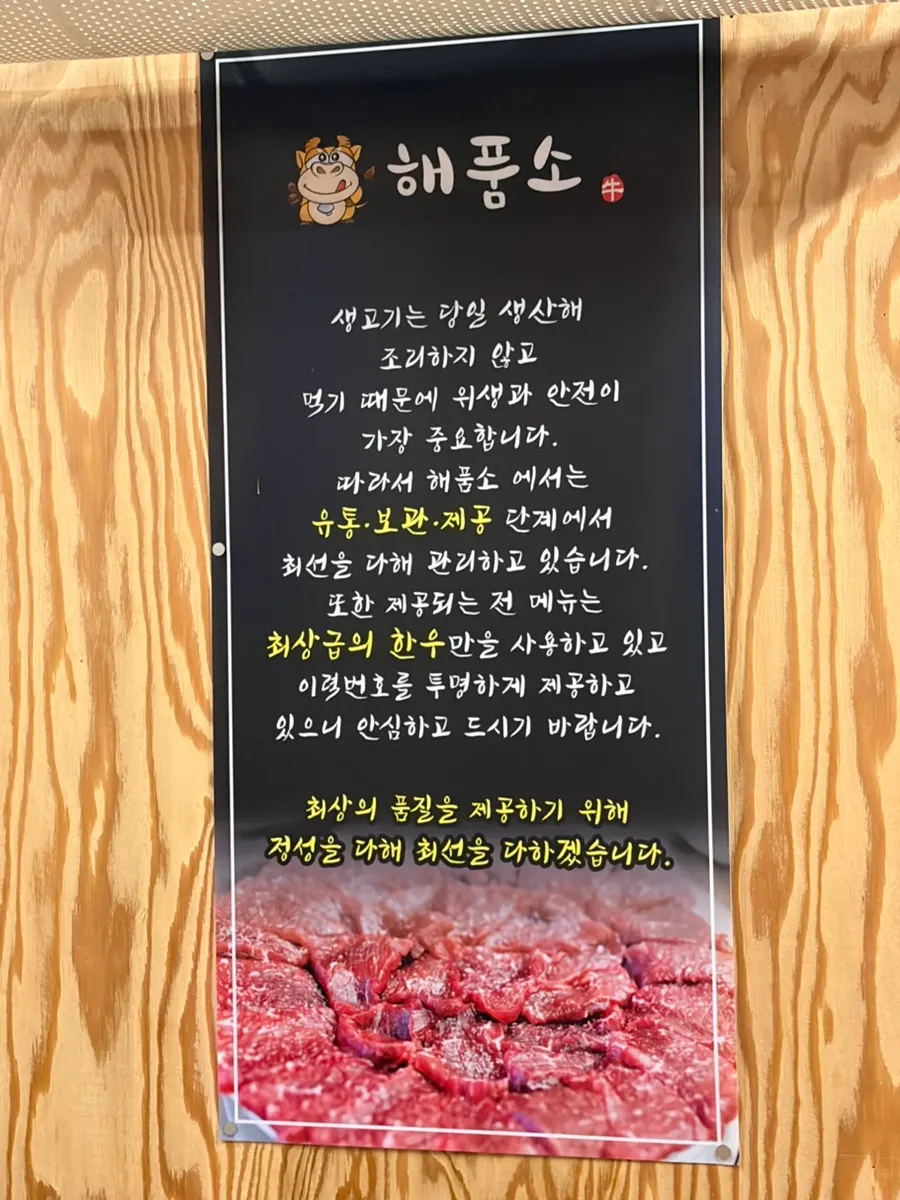 해품소
牛
생고기는 당일 생산해
조리하지 않고
먹기 때문에 위생과 안전이
가장 중요합니다.
따라서 해품소 에서는
유통·보관·제공 단계에서
최선을 다해 관리하고 있습니다.
또한 제공되는 전 메뉴는
최상급의 한우만을 사용하고 있고
이력번호를 투명하게 제공하고
있으니 안심하고 드시기 바랍니다.
최상의 품질을 제공하기 위해
정성을 다해 최선을 다하겠습니다.